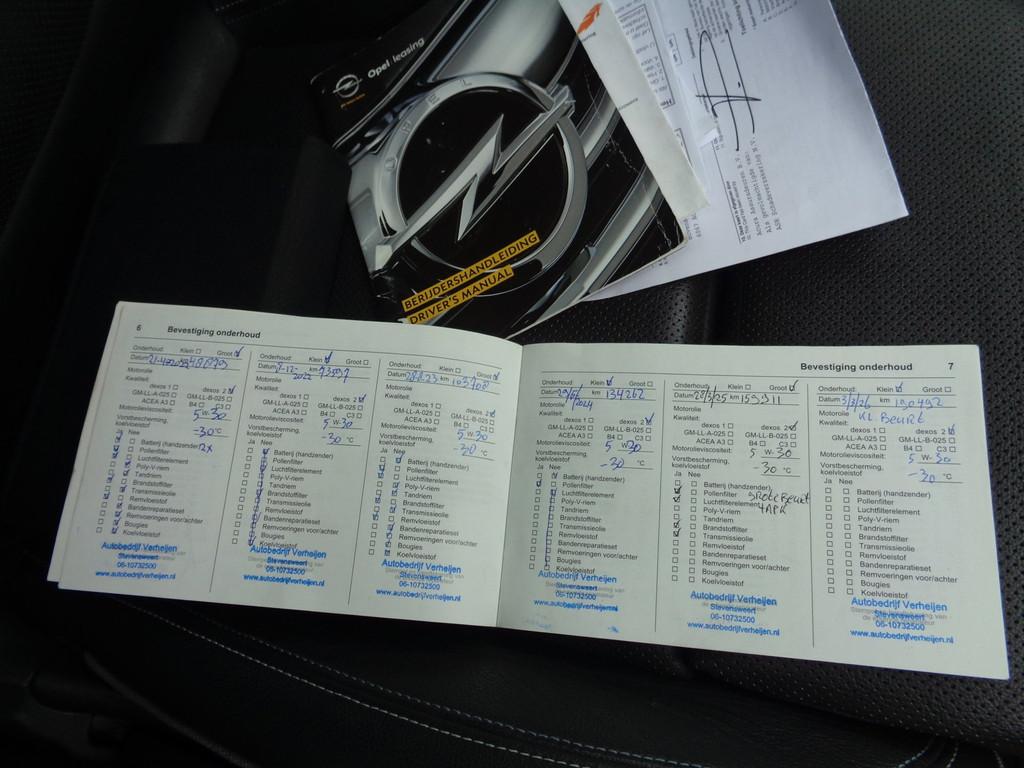 Opel leasing
OPEL
BERIJDERSHANDLEIDING
DRIVER'S MANUAL
6 Bevestiging onderhoud
Onderhoud: Klein Groot
Datum km
Motorolie
Kwaliteit:
dexos 1 dexos 2
GM-LL-A-025 GM-LL-B-025
ACEA A3 B4 C3
Motorolieviscositeit: 5 W-30
Vorstbescherming, koelvloeistof -30 °C
Ja Nee
Batterij (handzender) 2x
Pollenfilter
Luchtfilterelement
Poly-V-riem
Tandriem
Brandstoffilter
Transmissieolie
Remvloeistof
Bandenreparatieset
Remvoeringen voor/achter
Bougies
Koelvloeistof
Autobedrijf Verheijen
Stevensweert
06-10732500
www.autobedrijfverheijen.nl
Onderhoud: Klein Groot
Datum 7-12-2022 km
Motorolie
Kwaliteit:
dexos 1 dexos 2
GM-LL-A-025 GM-LL-B-025
ACEA A3 B4 C3
Motorolieviscositeit: 5 W-30
Vorstbescherming, koelvloeistof -30 °C
Ja Nee
Batterij (handzender)
Pollenfilter
Luchtfilterelement
Poly-V-riem
Tandriem
Brandstoffilter
Transmissieolie
Remvloeistof
Bandenreparatieset
Remvoeringen voor/achter
Bougies
Koelvloeistof
Autobedrijf Verheijen
Stevensweert
06-10732500
www.autobedrijfverheijen.nl
Onderhoud: Klein Groot
Datum km 103708
Motorolie
Kwaliteit:
dexos 1 dexos 2
GM-LL-A-025 GM-LL-B-025
ACEA A3 B4 C3
Motorolieviscositeit: 5 W-30
Vorstbescherming, koelvloeistof -30 °C
Ja Nee
Batterij (handzender)
Pollenfilter
Luchtfilterelement
Poly-V-riem
Tandriem
Brandstoffilter
Transmissieolie
Remvloeistof
Bandenreparatieset
Remvoeringen voor/achter
Bougies
Koelvloeistof
Autobedrijf Verheijen
Stevensweert
06-10732500
www.autobedrijfverheijen.nl
Bevestiging onderhoud 7
Onderhoud: Klein Groot
Datum km 134262
Motorolie
Kwaliteit:
dexos 1 dexos 2
GM-LL-A-025 GM-LL-B-025
ACEA A3 B4 C3
Motorolieviscositeit: 5 W-30
Vorstbescherming, koelvloeistof -30 °C
Ja Nee
Batterij (handzender)
Pollenfilter
Luchtfilterelement
Poly-V-riem
Tandriem
Brandstoffilter
Transmissieolie
Remvloeistof
Bandenreparatieset
Remvoeringen voor/achter
Bougies
Koelvloeistof
Autobedrijf Verheijen
Stevensweert
06-10732500
www.autobedrijfverheijen.nl
Onderhoud: Klein Groot
Datum 28/3/25 km 159311
Motorolie
Kwaliteit:
dexos 1 dexos 2
GM-LL-A-025 GM-LL-B-025
ACEA A3 B4 C3
Motorolieviscositeit: 5 W-30
Vorstbescherming, koelvloeistof -30 °C
Ja Nee
Batterij (handzender)
Pollenfilter
Luchtfilterelement
Poly-V-riem +APK
Tandriem
Brandstoffilter
Transmissieolie
Remvloeistof
Bandenreparatieset
Remvoeringen voor/achter
Bougies
Koelvloeistof
Autobedrijf Verheijen
Stevensweert
06-10732500
www.autobedrijfverheijen.nl
Onderhoud: Klein Groot
Datum 3/3/26 km 190492
Motorolie KL Beurt
Kwaliteit:
dexos 1 dexos 2
GM-LL-A-025 GM-LL-B-025
ACEA A3 B4 C3
Motorolieviscositeit: 5 W-30
Vorstbescherming, koelvloeistof -30 °C
Ja Nee
Batterij (handzender)
Pollenfilter
Luchtfilterelement
Poly-V-riem
Tandriem
Brandstoffilter
Transmissieolie
Remvloeistof
Bandenreparatieset
Remvoeringen voor/achter
Bougies
Koelvloeistof
Autobedrijf Verheijen
Stevensweert
06-10732500
www.autobedrijfverheijen.nl